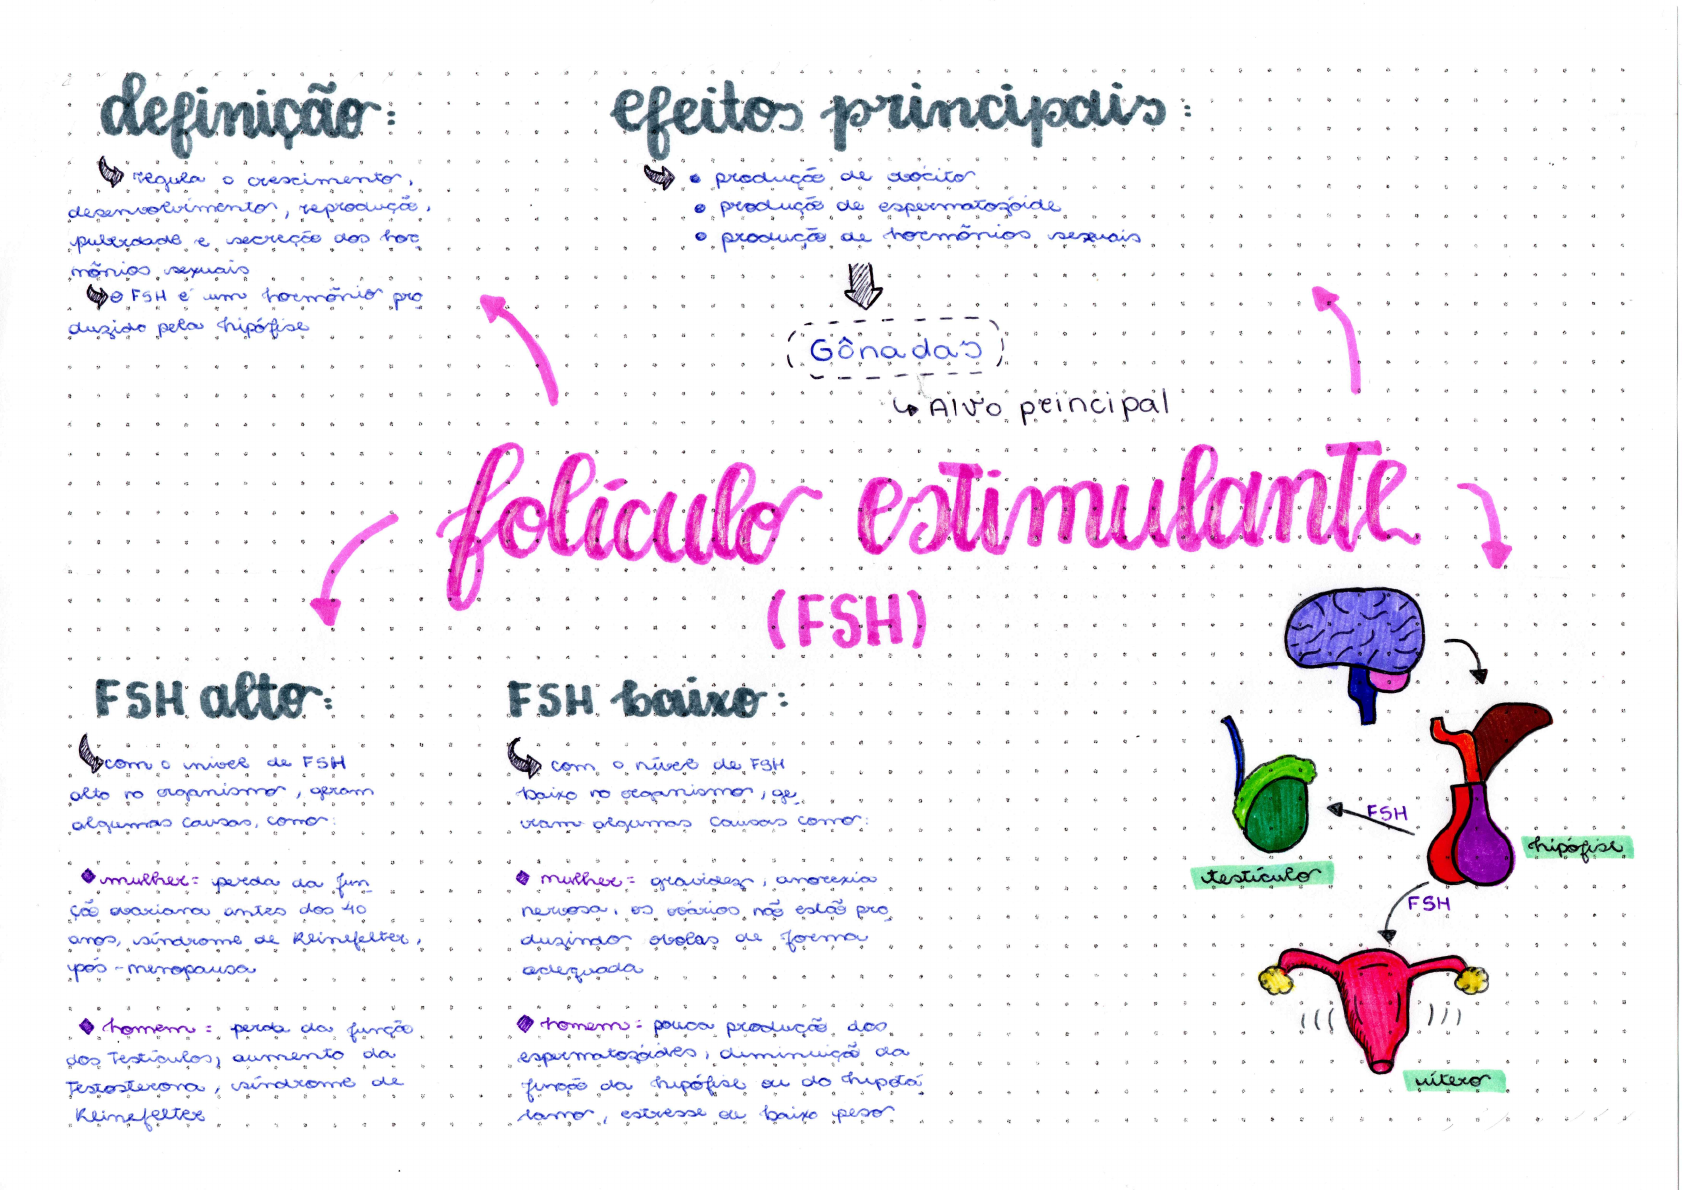 definição:
regula o crescimento,
desenvolvimento, reprodução,
puberdade e secreção dos hor
mônios sexuais
o FSH é um hormônio pro
duzido pela hipófise
efeitos principais:
• produção de oócito
• produção de espermatozóide
• produção de hormônios sexuais
Gônadas
Alvo principal
folículo estimulante
(FSH)
FSH alto:
com o nível de FSH
alto no organismo, geram
algumas causas, como:
mulher: perda da fun
ção ovariana antes dos 40
anos, síndrome de Kleinefelter,
pós-menopausa
homem: perda da função
dos testículos, aumento da
testosterona, síndrome de
Kleinefelter
FSH baixo:
com o nível de FSH
baixo no organismo, ge
ram algumas causas como:
mulher: gravidez, anorexia
nervosa, os ovários não estão pro
duzindo óvolas de forma
adequada
homem: pouca produção dos
espermatozóides, diminuição da
função da hipófise ou do hipotá
lamo, estresse ou baixo peso
FSH
hipófise
testículo
FSH
útero